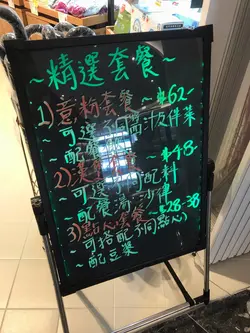 ~精選套餐~
1)意粉套餐~$62-
~可選 醬汁及伴菜
~配餐湯
2)漢堡套餐~$48-
~可選不同配料
~配餐湯 沙律
3)點心套餐~$28-38
~可搭配不同點心)
~配豆漿